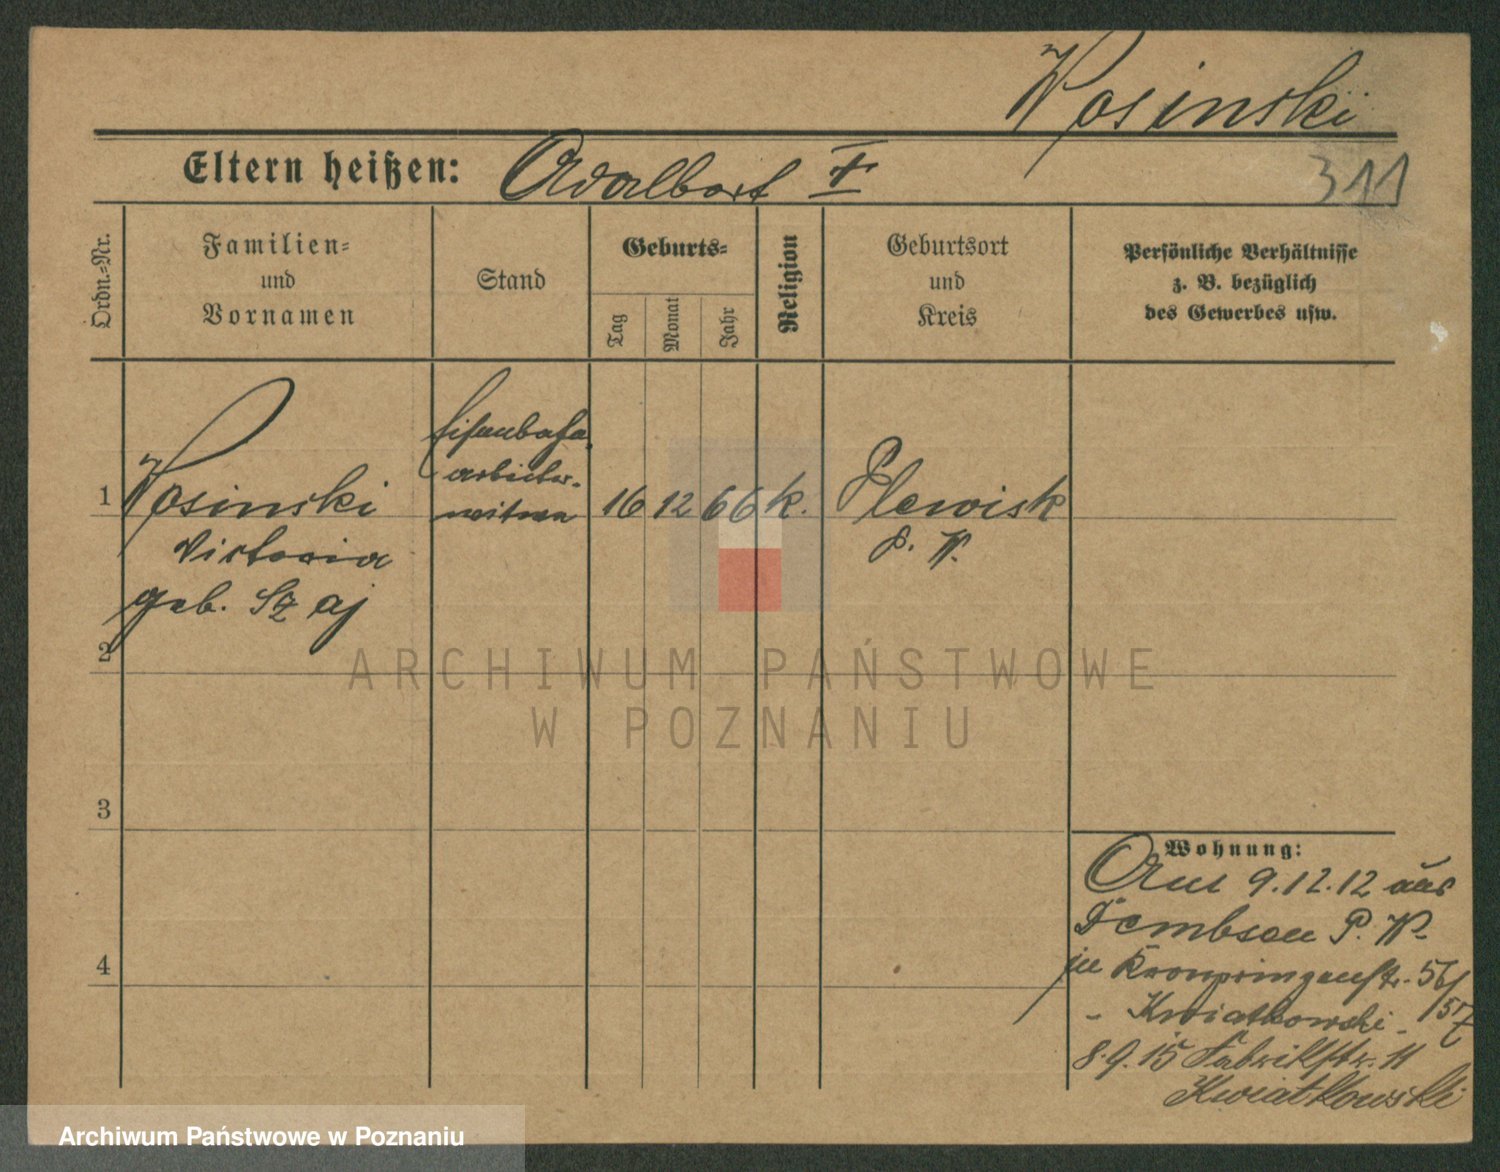 Wosinski
Eltern heißen: Adalbert †
311
Ordn.=Nr.
Familien=
und
Vornamen
Stand
Geburts=
Tag
Monat
Jahr
Religion
Geburtsort
und
Kreis
Persönliche Verhältnisse
z. B. bezüglich
des Gewerbes usw.
1
Wosinski
Victoria
geb. Szaj
Eisenbahn
arbeiter-
witwe
16 12 66 k.
Plewisk
P. W.
2
3
4
Wohnung:
Am 9.12.12 aus
Dembsen P. W.
in Kronprinzenstr. 56/
57
- Kwiatkowski -
8.9.15 Fabrikstr. 11
Kwiatkowski
ARCHIWUM PAŃSTWOWE
W POZNANIU
Archiwum Państwowe w Poznaniu